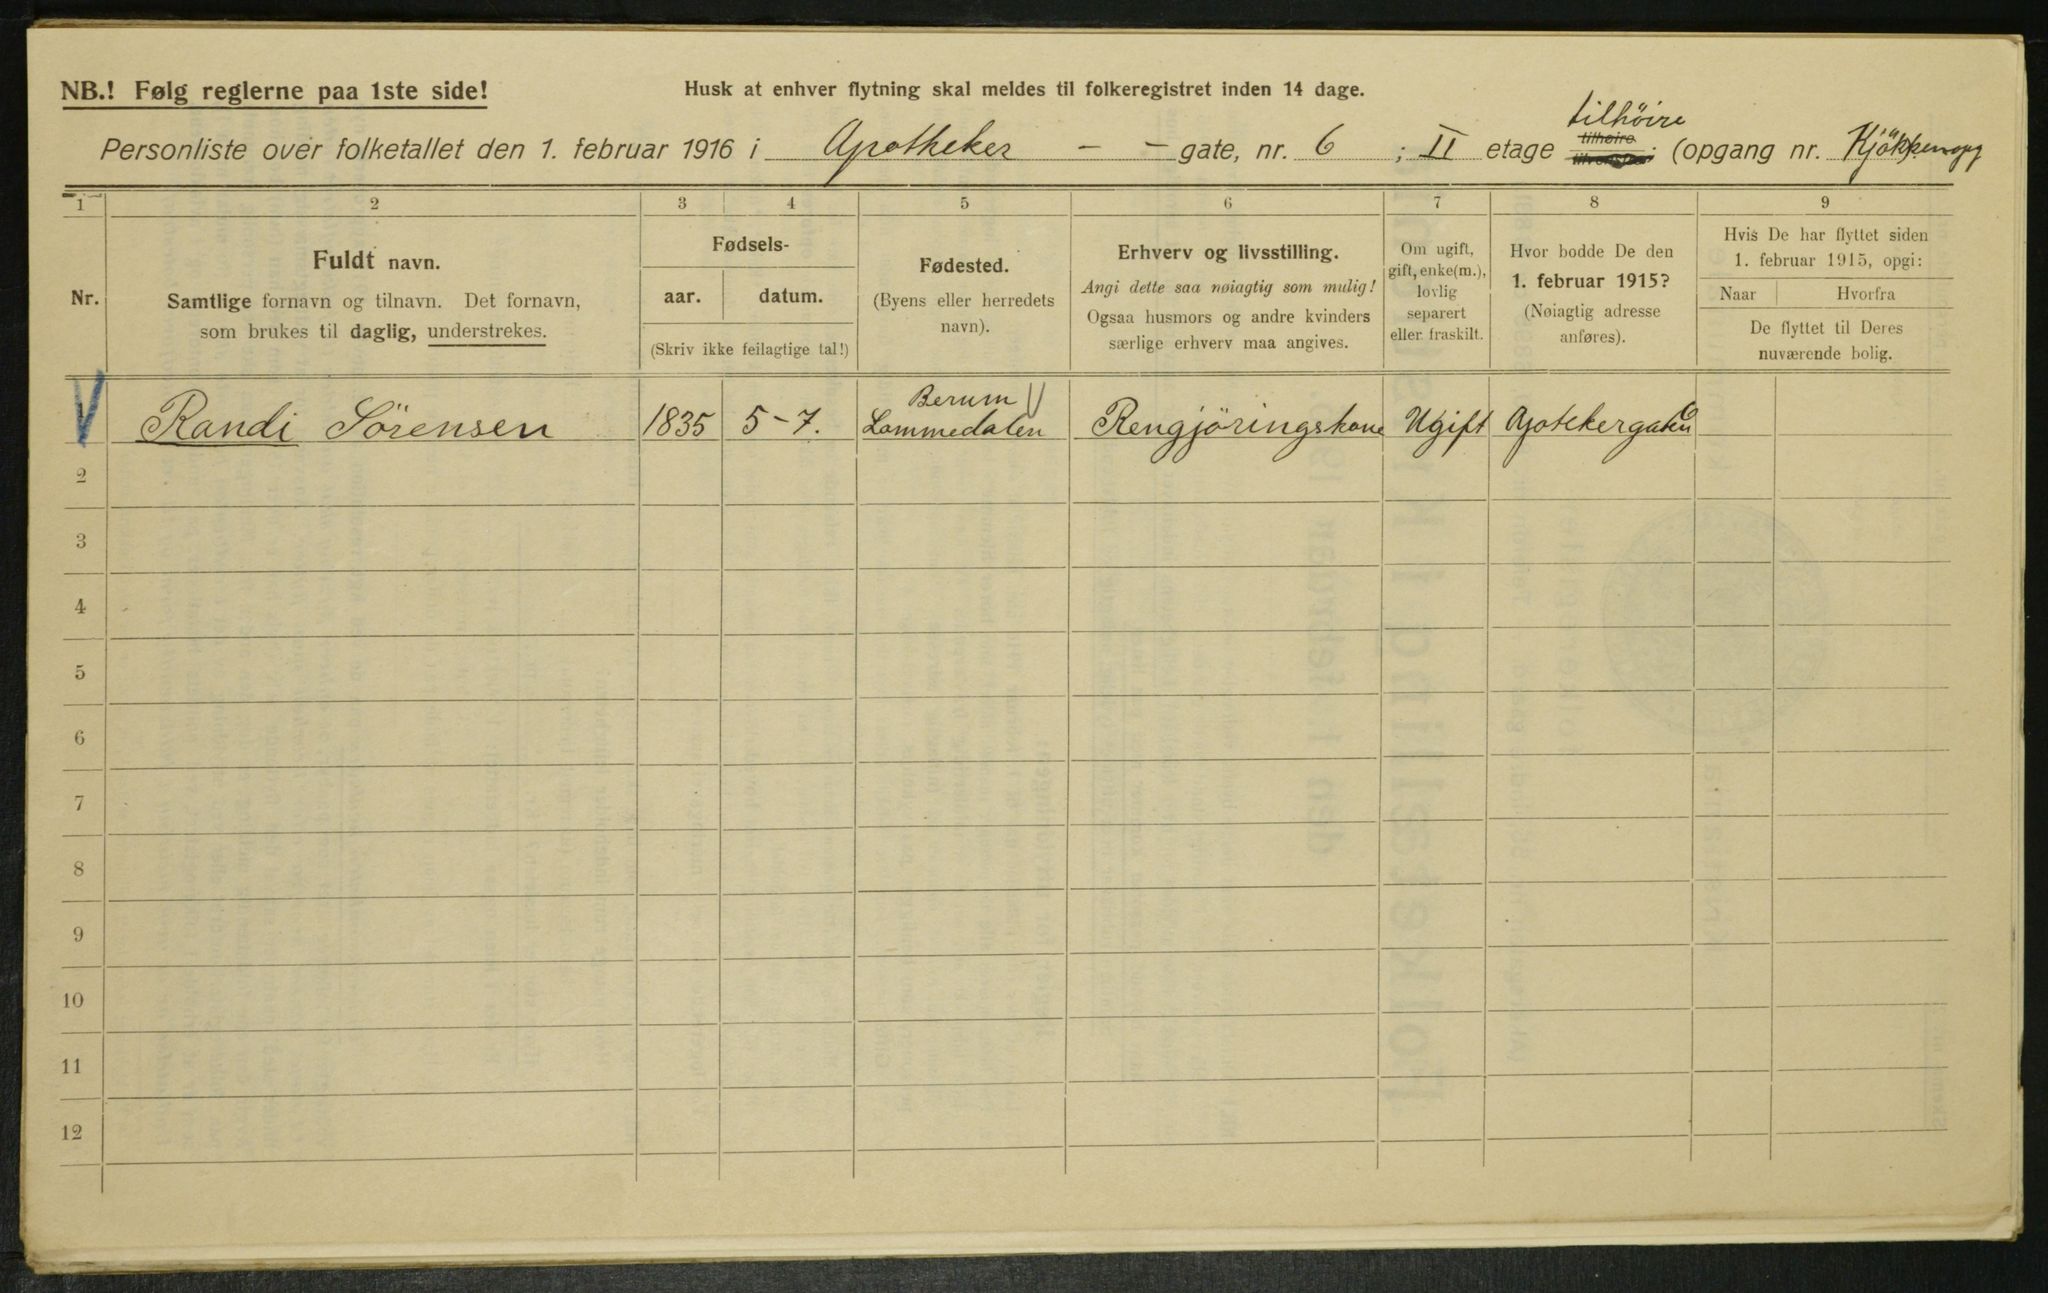 NB.! Følg reglerne paa 1ste side!
Husk at enhver flytning skal meldes til folkeregistret inden 14 dage.
tilhöire
Personliste over folketallet den 1. februar 1916 i Apotheker - - gate, nr. 6 ; II etage tilhøire (opgang nr. Kjökkenopg
1 2 3 4 5 6 7 8 9
Nr.
Fuldt navn.
Samtlige fornavn og tilnavn. Det fornavn,
som brukes til daglig, understrekes.
Fødsels-
aar. datum.
(Skriv ikke feilagtige tal!)
Fødested.
(Byens eller herredets
navn).
Erhverv og livsstilling.
Angi dette saa nøiagtig som mulig!
Ogsaa husmors og andre kvinders
særlige erhverv maa angives.
Om ugift,
gift, enke(m.),
lovlig
separert
eller fraskilt.
Hvor bodde De den
1. februar 1915?
(Nøiagtig adresse
anføres).
Hvis De har flyttet siden
1. februar 1915, opgi:
Naar Hvorfra
De flyttet til Deres
nuværende bolig.
Berum
Randi Sörensen 1835 5-7. Lommedalen Rengjöringskone Ugift Apotekergaten 6
2
3
4
5
6
7
8
9
10
11
12